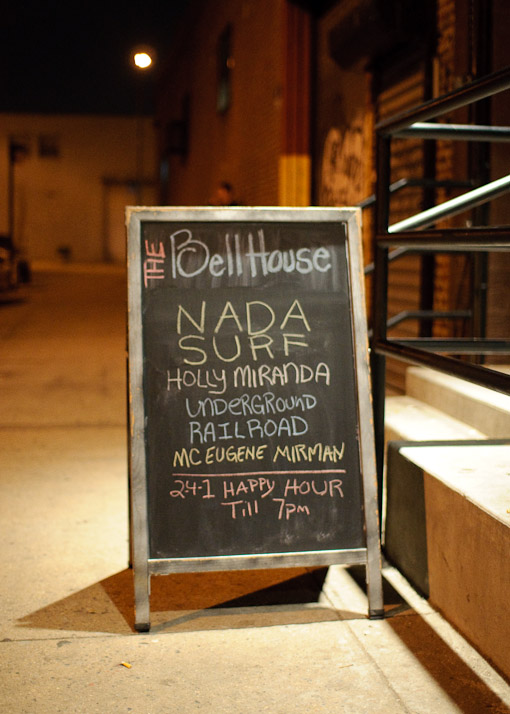 THE Bell House
NADA
SURF
HOLLY MIRANDA
UNDERGROUND
RAILROAD
MC EUGENE MIRMAN
2-4-1 HAPPY HOUR
Till 7pm